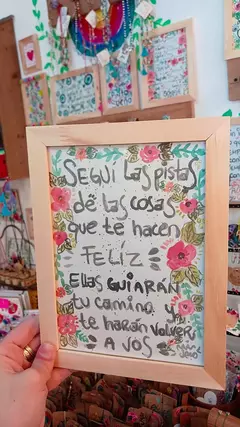 SEGUÍ LAS PISTAS
DE LAS COSAS
QUE TE HACEN
FELÍZ
ELLAS GUIARÁN
TU CAMINO Y
TE HARÁN VOLVER
A VOS